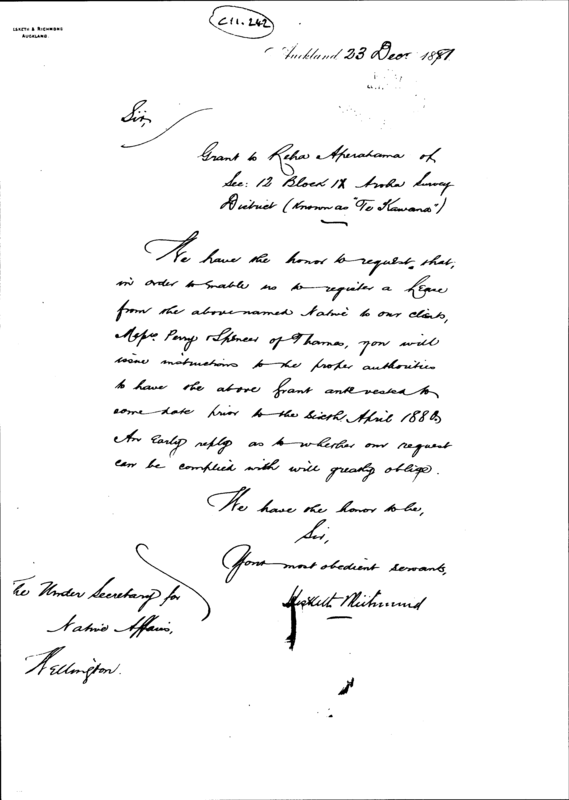 C11.242
ESKETH & RICHMOND
AUCKLAND.
Auckland 23 Decr 1881.
Sir,
Grant to Reha Aperahama of
Sec: 12 Block IX Aroha Survey
District (Known as "Te Kawana")
We have the honor to request that,
in order to enable us to register a Lease
from the abovenamed Native to our clients,
Messrs. Perry & Spencer of Thames, you will
issue instructions to the proper authorities
to have the above Grant antevested to
some date prior to the Sixth April 1880
An Early reply as to whether our request
can be complied with will greatly oblige.
We have the honor to be,
Sir,
Your most obedient servants,
Hesketh Richmond
The Under Secretary for
Native Affairs,
Wellington.